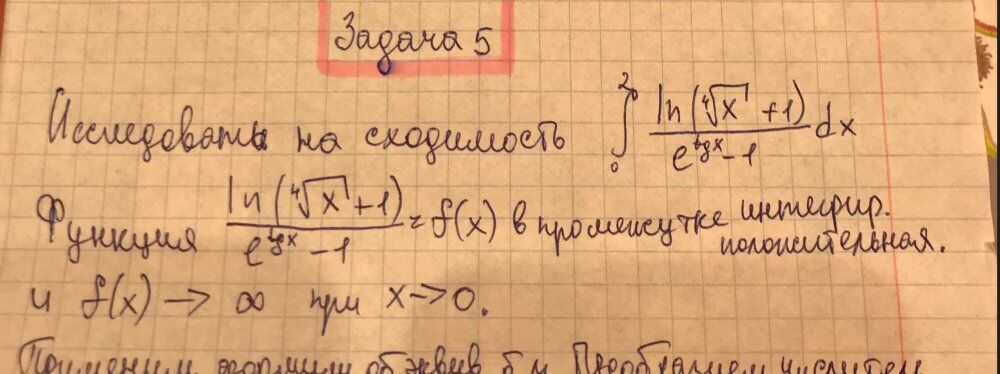 Задача 5
Исследовать на сходимость ∫₀² ln(⁴√x + 1) / (e^(tg x) − 1) dx
Функция ln(⁴√x + 1) / (e^(tg x) − 1) = f(x) в промежутке интегрир. положительная.
и f(x) → ∞ при x → 0.